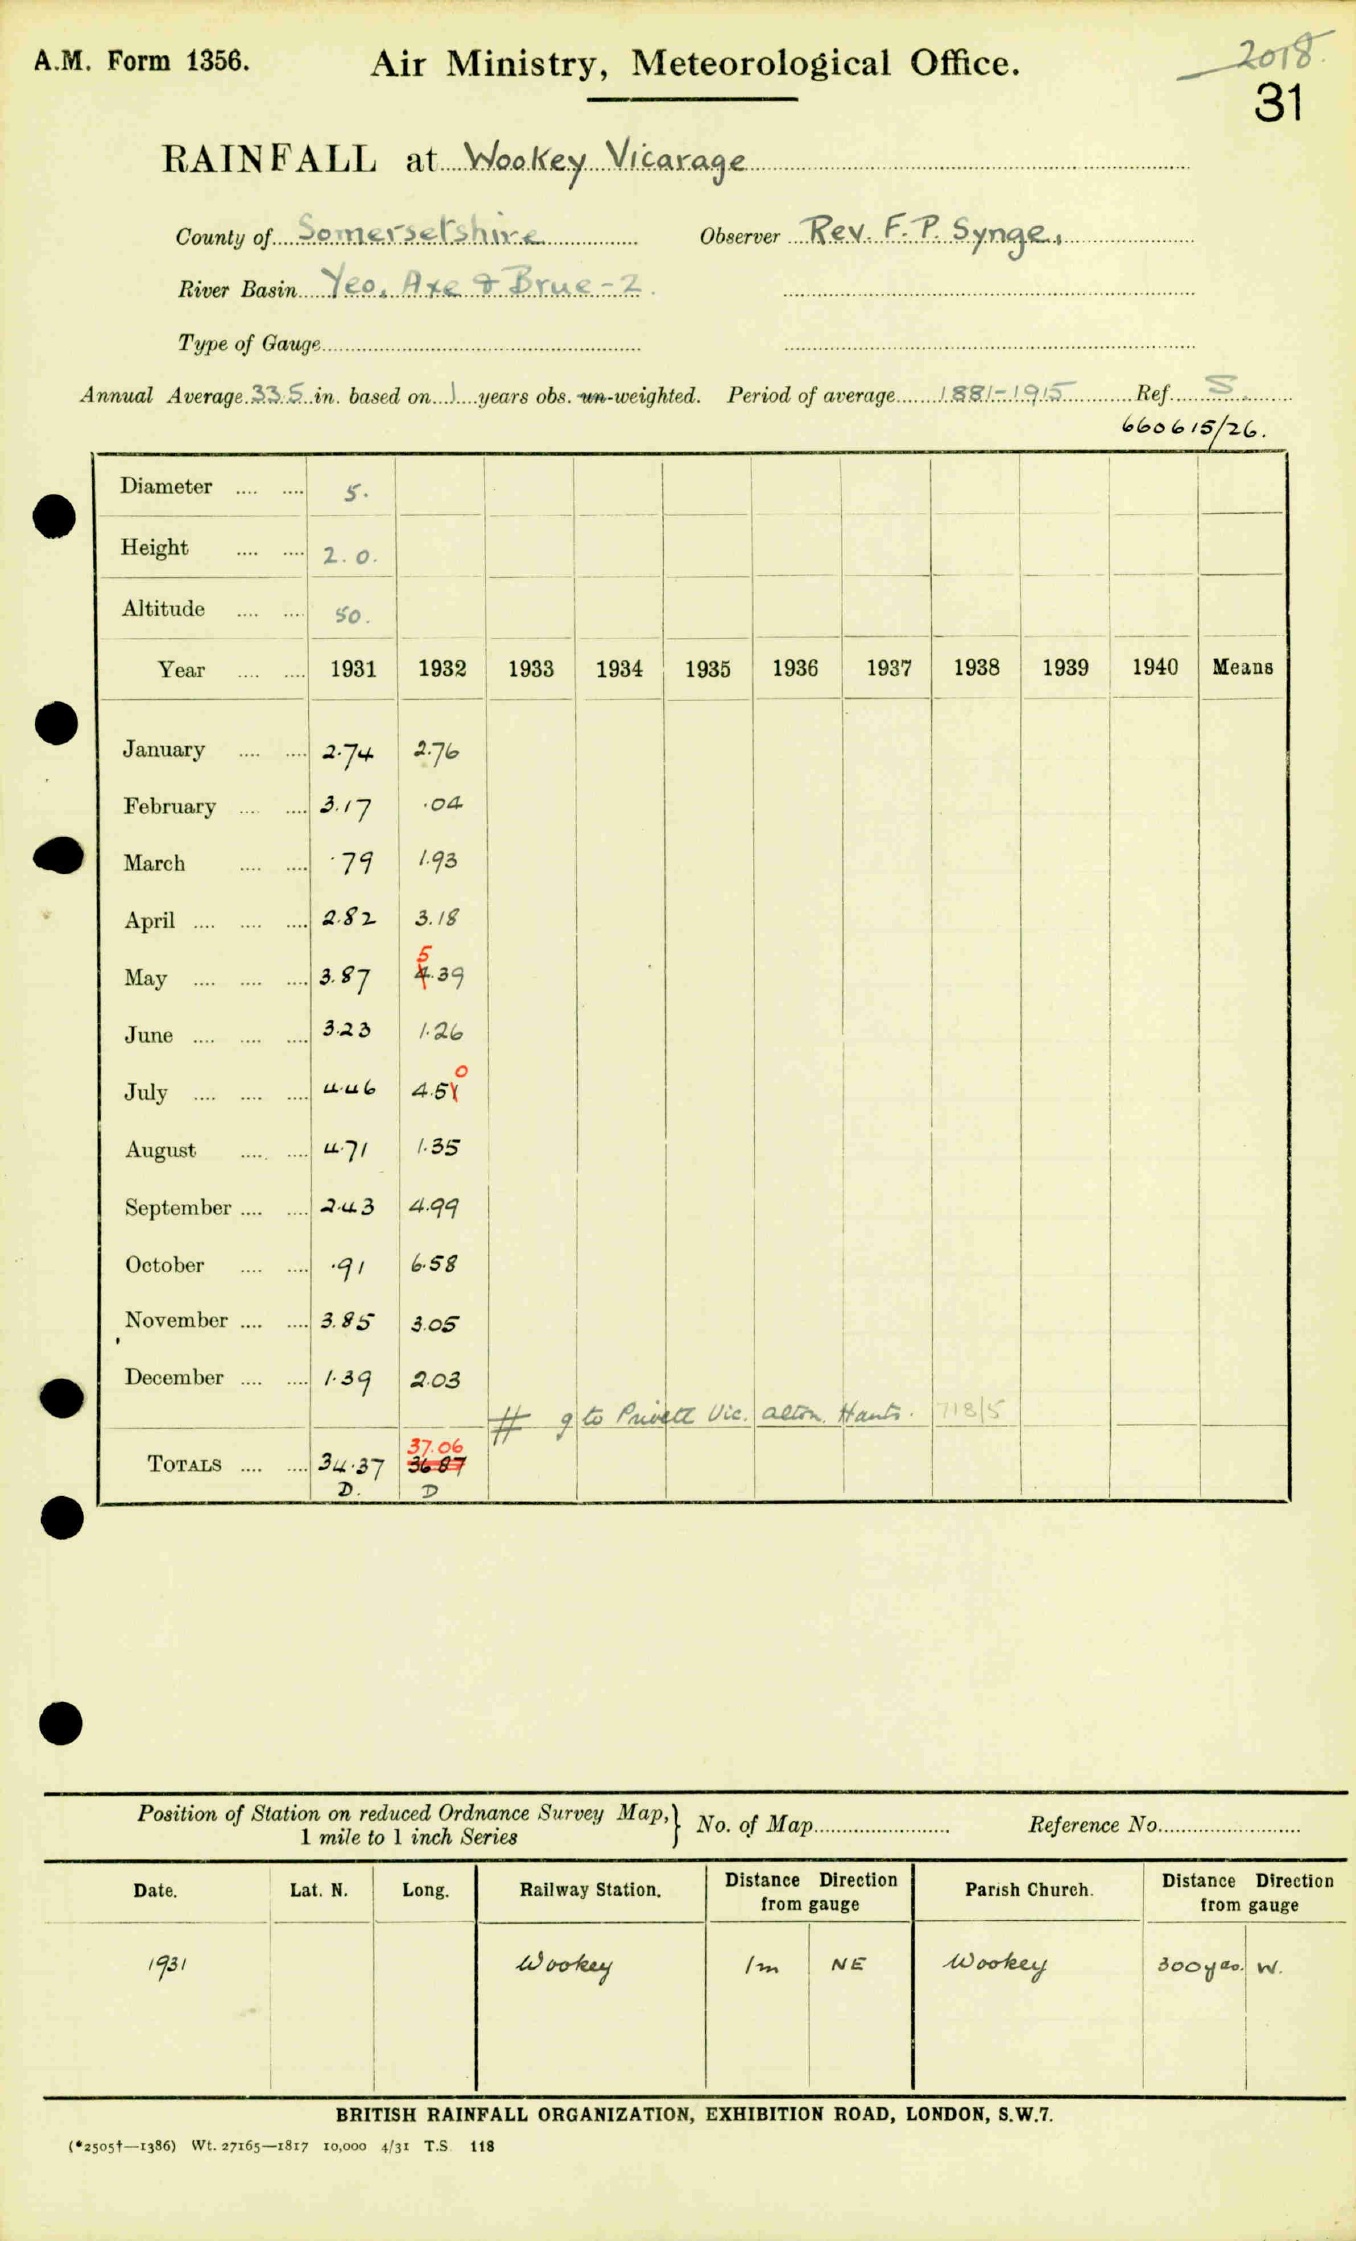 A.M. Form 1356.
Air Ministry, Meteorological Office.
2018.
31
RAINFALL at Wookey Vicarage
County of Somersetshire Observer Rev. F. P. Synge,
River Basin Yeo, Axe & Brue - 2.
Type of Gauge
Annual Average 33.5 in. based on 1 years obs. un-weighted. Period of average 1881-1915 Ref. S.
660615/26.
Diameter .... .... 5.
Height .... .... 2.0.
Altitude .... .... 50.
Year .... .... 1931 1932 1933 1934 1935 1936 1937 1938 1939 1940 Means
January .... .... 2.74 2.76
February .... .... 3.17 .04
March .... .... .79 1.93
April .... .... .... 2.82 3.18
5
May .... .... .... 3.87 4.39
June .... .... .... 3.23 1.26
0
July .... .... .... 4.46 4.51
August .... .... 4.71 1.35
September .... .... 2.43 4.99
October .... .... .91 6.58
November .... .... 3.85 3.05
December .... .... 1.39 2.03
# g to Privett Vic. Alton. Hants. 718/5
37.06
TOTALS .... .... 34.37 36.87
D. D
Position of Station on reduced Ordnance Survey Map, } No. of Map Reference No.
1 mile to 1 inch Series
Date. Lat. N. Long. Railway Station. Distance Direction from gauge Parish Church. Distance Direction from gauge
1931 Wookey 1m NE Wookey 300 yds. W.
BRITISH RAINFALL ORGANIZATION, EXHIBITION ROAD, LONDON, S.W.7.
(*2505†—1386) Wt. 27165—1817 10,000 4/31 T.S. 118